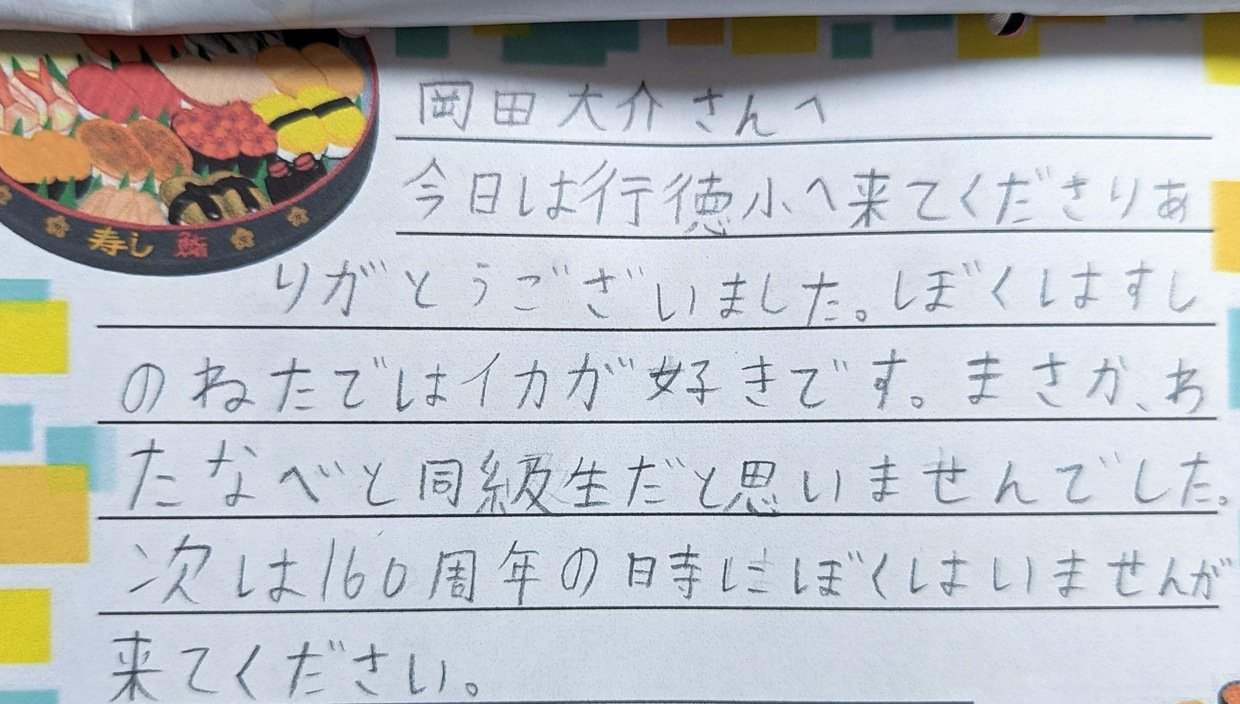 寿し 鮨
岡田大介さんへ
今日は行徳小へ来てくださりあ
りがとうございました。ぼくはすし
のねたではイカが好きです。まさか、わ
たなべと同級生だと思いませんでした。
次は160周年の時にぼくはいませんが
来てください。